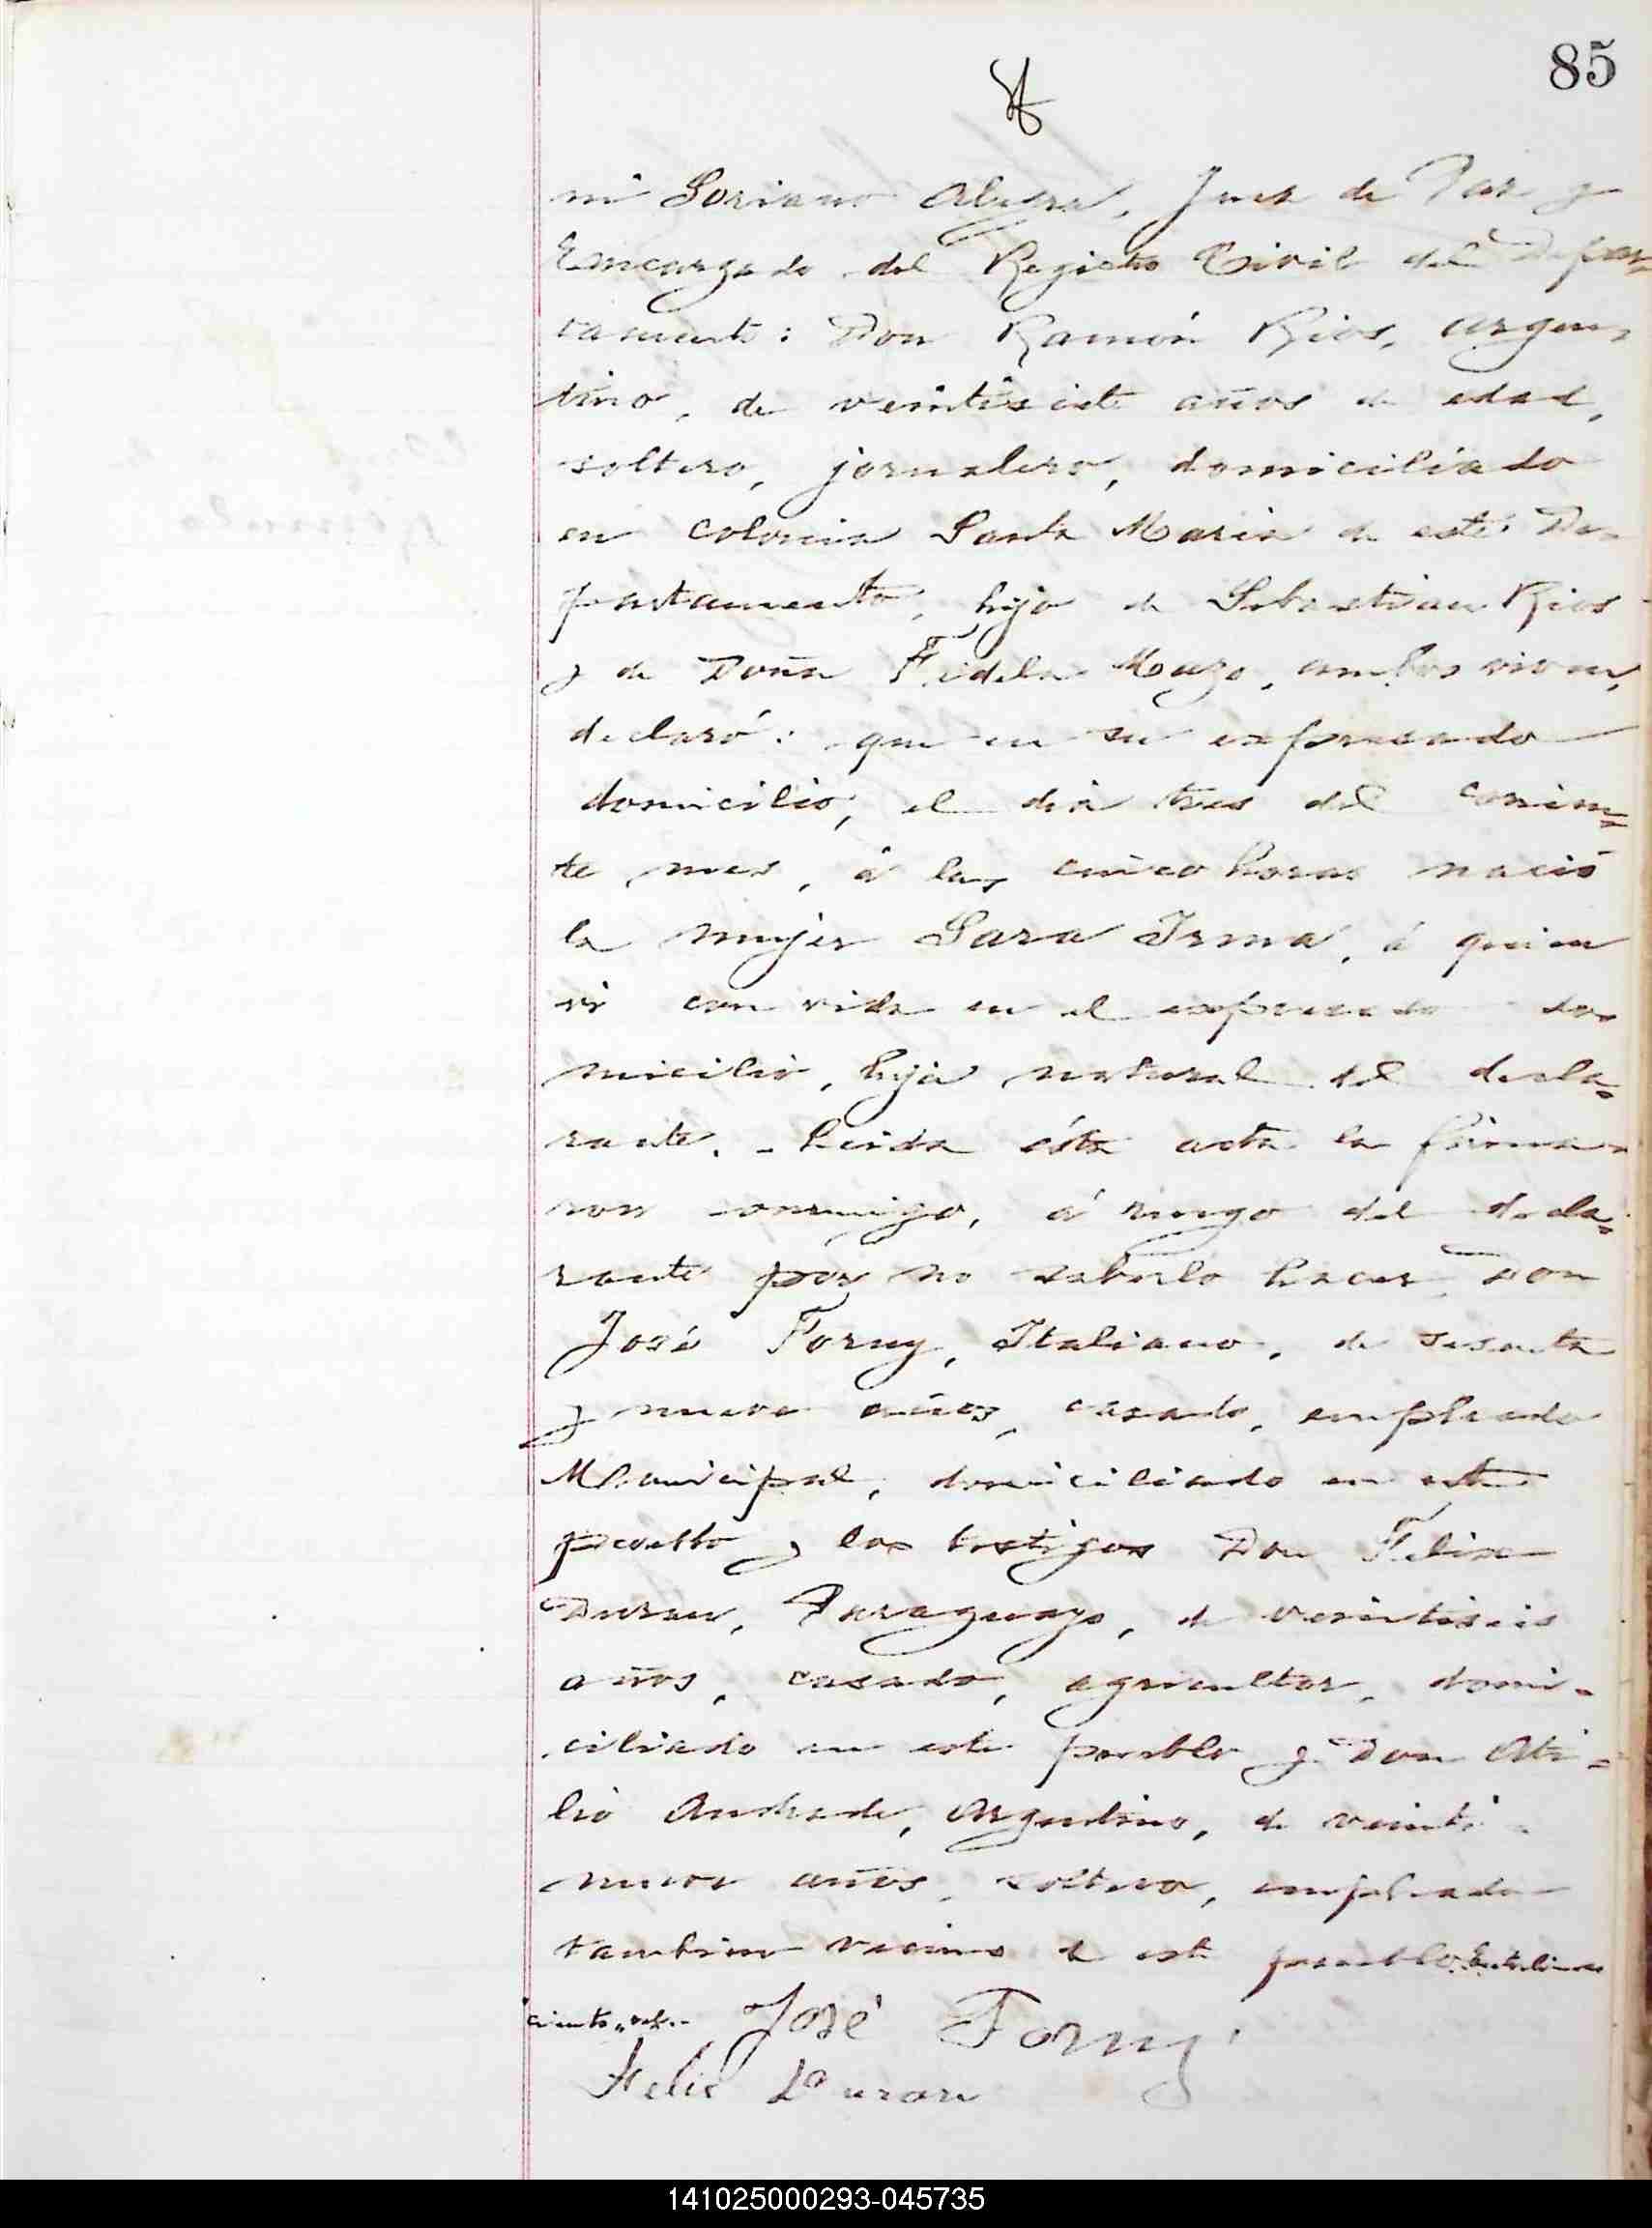 85
mi Soriano Alegre, Juez de Paz y
Encargado del Registro Civil del Depar
tamento: Don Ramón Rios, argen-
tino, de veintisiete años de edad,
soltero, jornalero, domiciliado
en colonia Santa Maria de este De-
partamento, hijo de Sebastian Rios
y de Doña Fidela Mazo, ambos viven,
declaró: que en su expresado
domicilio, el dia tres del corrien=
te mes, á las cinco horas nació
la mujer Sara Irma, á quien
vi con vida en el expresado do-
micilio, hija natural del decla=
rante. - Leida ésta acta la firma-
ron conmigo, á ruego del decla=
rante por no saberlo hacer Don
José Forny, Italiano, de sesenta
y nueve años, casado, empleado
Municipal, domiciliado en este
pueblo y los testigos Don Felix
Duran, Paraguayo, de veintiseis
años, casado, agricultor, domi-
ciliado en este pueblo y Don Ati=
lio Andrade, Argentino, de veinti-
nueve años, soltero, empleado
tambien vecino de este pueblo.
José Forny
Felis Duran
141025000293-045735